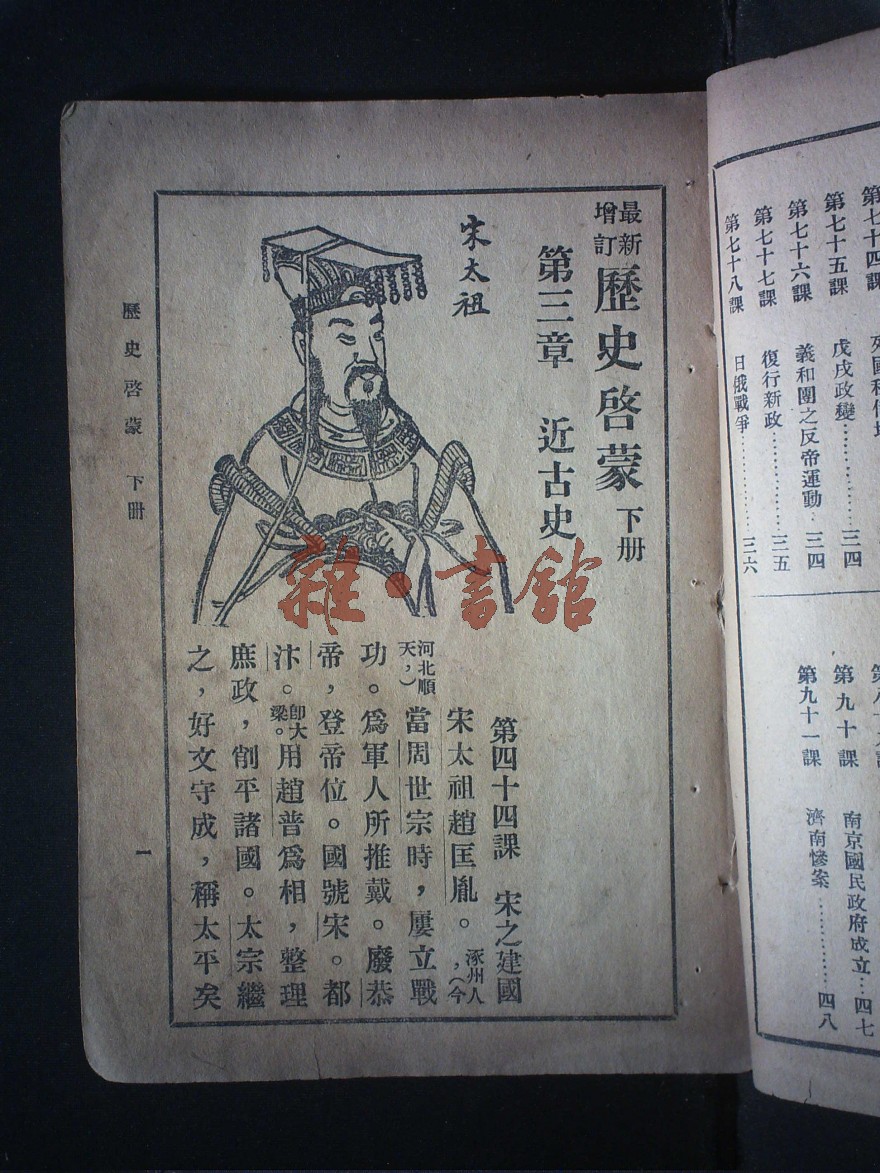 第七十五課 戊戌政變…………三四
第七十六課 義和團之反帝運動…三四
第七十七課 復行新政…………三五
第七十八課 日俄戰爭…………三六
第九十課 南京國民政府成立…四七
第九十一課 濟南慘案…………四八
最新增訂 歷史啓蒙 下册
第三章 近古史
宋太祖
第四十四課 宋之建國
宋太祖趙匡胤。涿州人,(今
河北順天,)當周世宗時,屢立戰
功。爲軍人所推戴。廢恭
帝,登帝位。國號宋。都
汴。卽大梁。用趙普爲相,整理
庶政,削平諸國。太宗繼
之,好文守成,稱太平矣
歷史啓蒙 下册
一
雜·書館